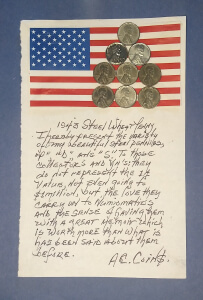 1943 Steel Wheat Penny
I hereby present the variety
of my beautiful steel pennies,
"P" "D", and "S" to those
collectors and
do not represent the 1¢
value, not even going to
$1 million, but the love they
carry on to Numismatics
and the sense of having them
with a great memoir which
is worth more than what is
has been said about them
before.
A.C. Coins